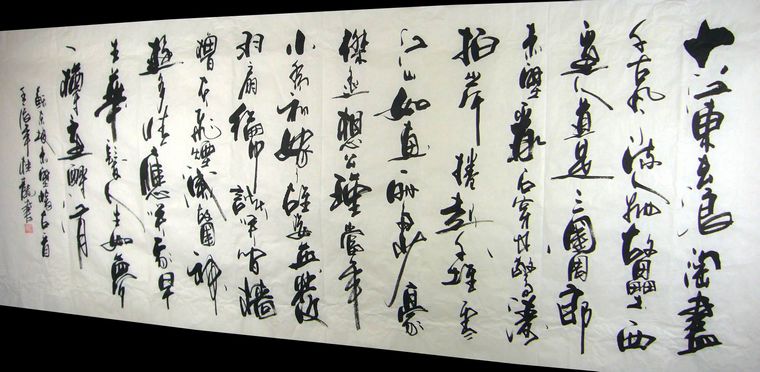 大江東去浪淘盡
千古風流人物故壘西
邊人道是三國周郎
赤壁亂石穿空驚濤
拍岸捲起千堆雪
江山如畫一時多少豪
傑遥想公瑾當年
小喬初嫁了雄姿英發
羽扇綸巾談笑間檣
櫓灰飛煙滅故國神
遊多情應笑我早
生華髮人生如夢
一樽還酹江月
蘇東坡赤壁懷古一首